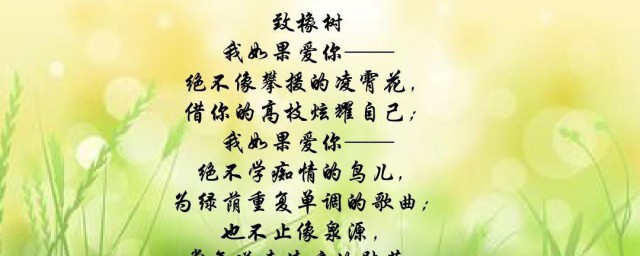 致橡树
我如果爱你——
绝不像攀援的凌霄花，
借你的高枝炫耀自己；
我如果爱你——
绝不学痴情的鸟儿，
为绿荫重复单调的歌曲；
也不止像泉源，